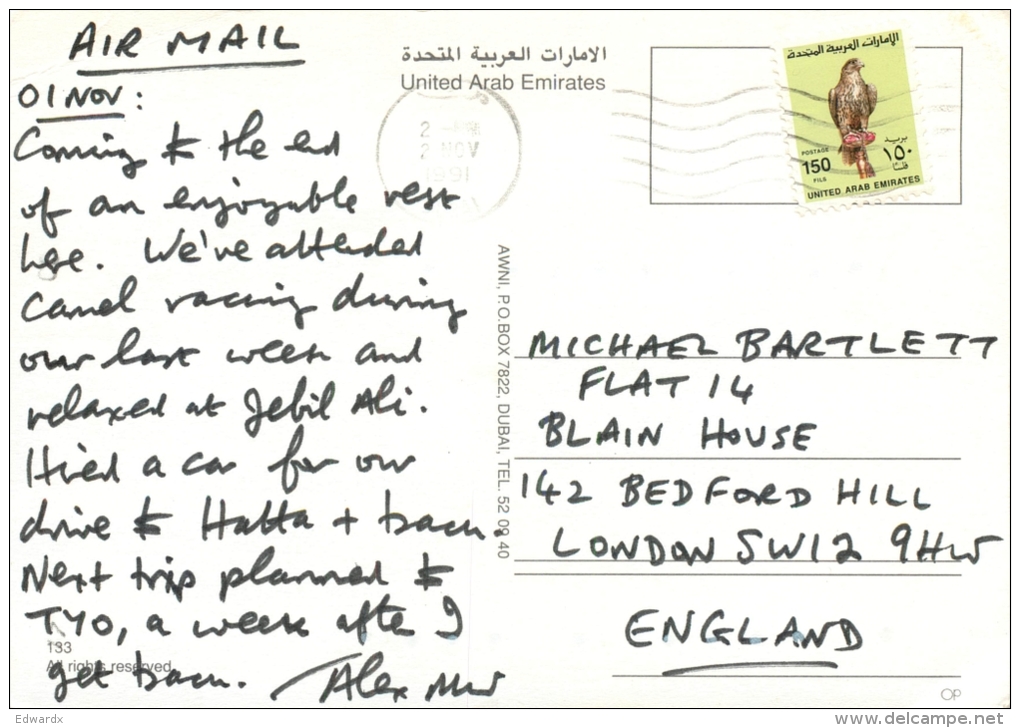 AIR MAIL
01 NOV :
Coming to the end
of an enjoyable rest
here. We've attended
camel racing during
our last week and
relaxed at Jebil Ali.
Hired a car for our
drive to Hatta + back.
Next trip planned to
TYO, a week after I
get back. Alex
133
All rights reserved
الامارات العربية المتحدة
United Arab Emirates
2 NOV
1991
الإمارات العربية المتحدة
بريد
POSTAGE
150 ١٥٠
FILS فلسا
UNITED ARAB EMIRATES
AWNI, P.O.BOX 7822, DUBAI, TEL. 52 09 40
MICHAEL BARTLETT
FLAT 14
BLAIN HOUSE
142 BEDFORD HILL
LONDON SW12 9HW
ENGLAND
OP
Edwardx
www.delcampe.net